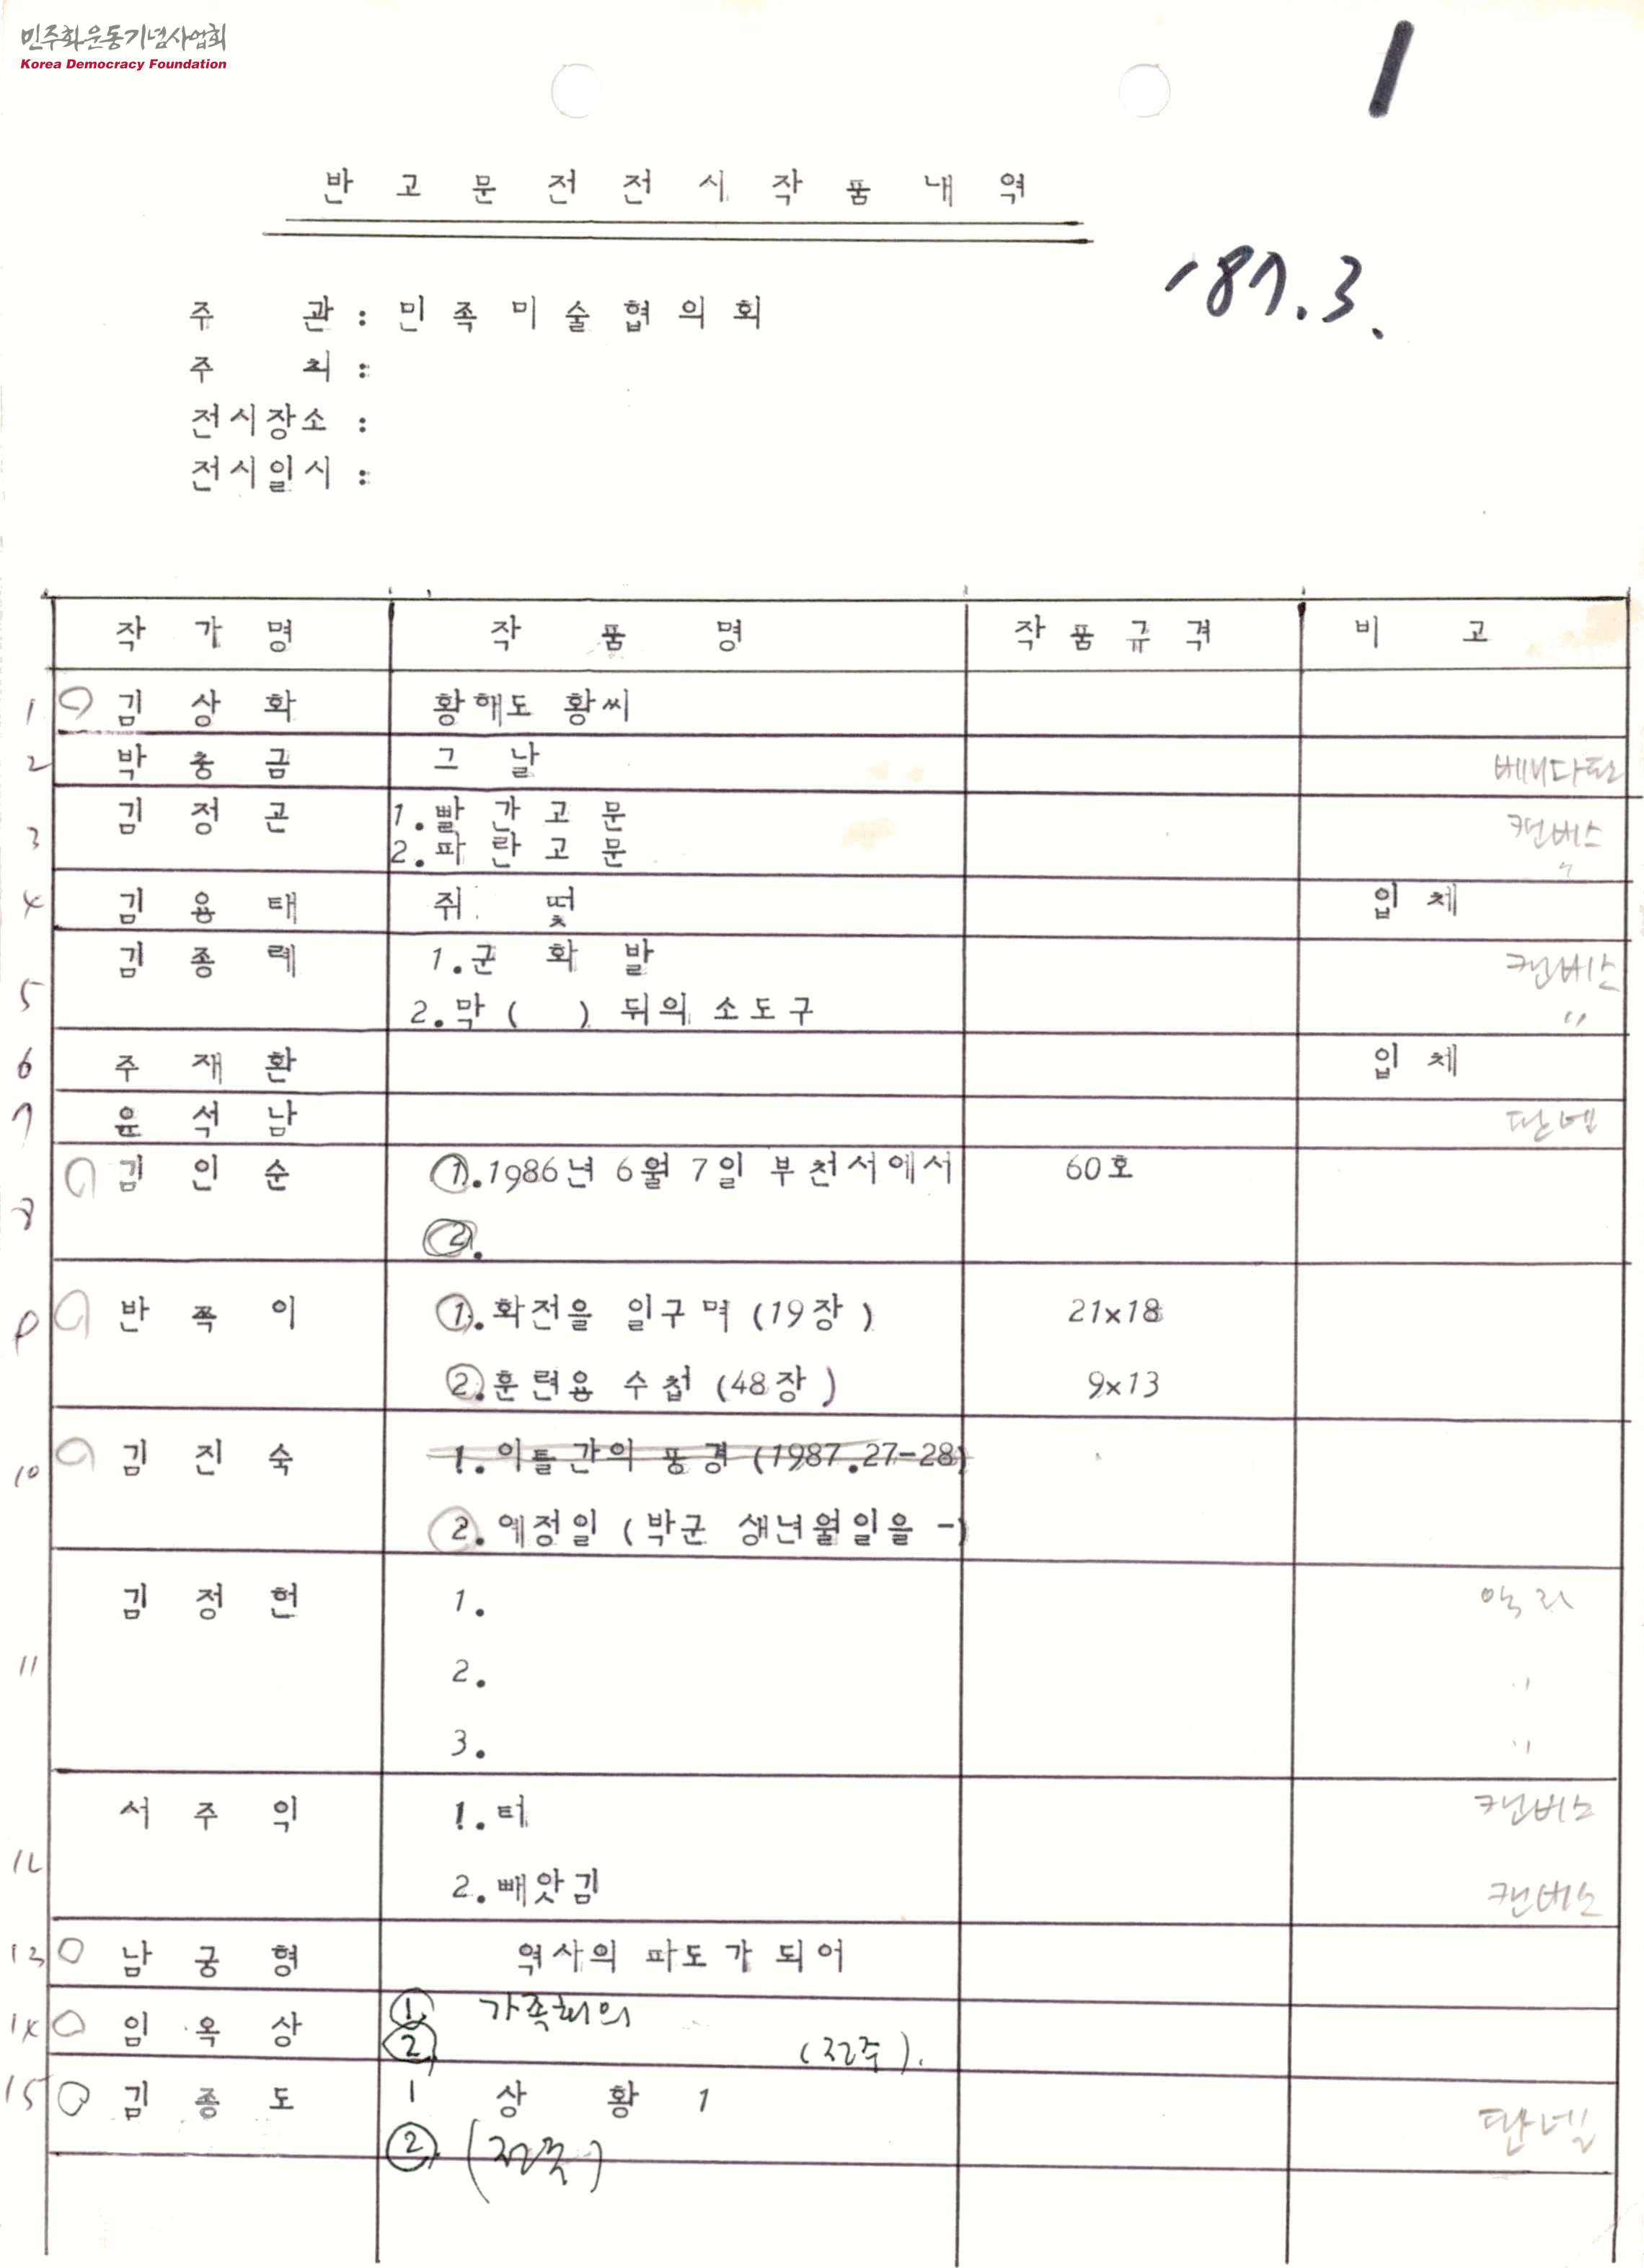 민주화운동기념사업회
Korea Democracy Foundation
1
반 고 문 전 전 시 작 품 내 역
'87.3.
주 관 : 민 족 미 술 협 의 회
주 최 :
전시장소 :
전시일시 :
작 가 명 작 품 명 작 품 규 격 비 고
1 김 상 화 황해도 황씨
2 박 충 금 그 날
3 김 정 곤 1. 빨 간 고 문 캔버스
2. 파 란 고 문 〃
4 김 용 태 쥐 떷 입 체
5 김 종 례 1. 군 화 발 캔버스
2. 막 ( ) 뒤의 소도구 〃
6 주 재 환 입 체
7 윤 석 남 판넬
8 김 인 순 ①. 1986년 6월 7일 부천서에서 60호
②.
9 반 쪽 이 ①. 화전을 일구며 (19장) 21×18
②. 훈련용 수첩 (48장) 9×13
10 김 진 숙 1. 이틀간의 풍경 (1987.27-28)
2. 예정일 (박군 생년월일을 -)
11 김 정 헌 1.
2. 〃
3. 〃
12 서 주 익 1. 터 캔버스
2. 빼앗김 캔버스
13 남 궁 형 역사의 파도가 되어
14 임 옥 상 ① 가족회의
② (전주).
15 김 종 도 1 상 황 1 판넬
② (전주)